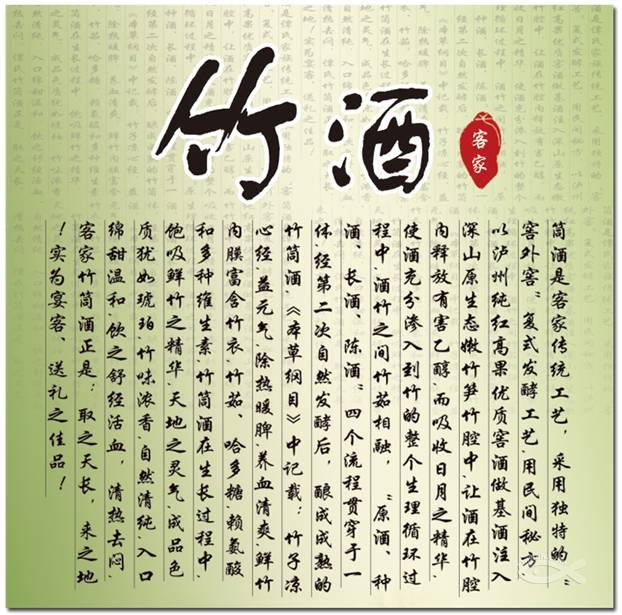 竹酒
客家
筒酒是客家传统工艺，采用独特的“
窖外窖”复式发酵工艺、用民间秘方
以泸州纯红高果优质窖酒做基酒注入
深山原生态嫩竹笋竹腔中、让酒在竹腔
内释放有害乙醇、而吸收日月之精华、
使酒充分渗入到竹的整个生理循环过
程中、酒竹之间竹茹相融，“原酒、种
酒、长酒、陈酒”四个流程贯穿于一
体、经第二次自然发酵后，酿成成熟的
竹筒酒、《本草纲目》中记载：竹子凉
心经、益元气、除热暖脾、养血清爽、鲜竹
内膜富含竹衣、竹茹、哈多糖、赖氨酸
和多种维生素、竹筒酒在生长过程中、
饱吸鲜竹之精华天地之灵气、成品色
质犹如琥珀、竹味浓香、自然清纯、入口
绵甜温和、饮之舒经活血，清热去闷、
客家竹筒酒正是：取之天长，来之地
！实为宴客、送礼之佳品！